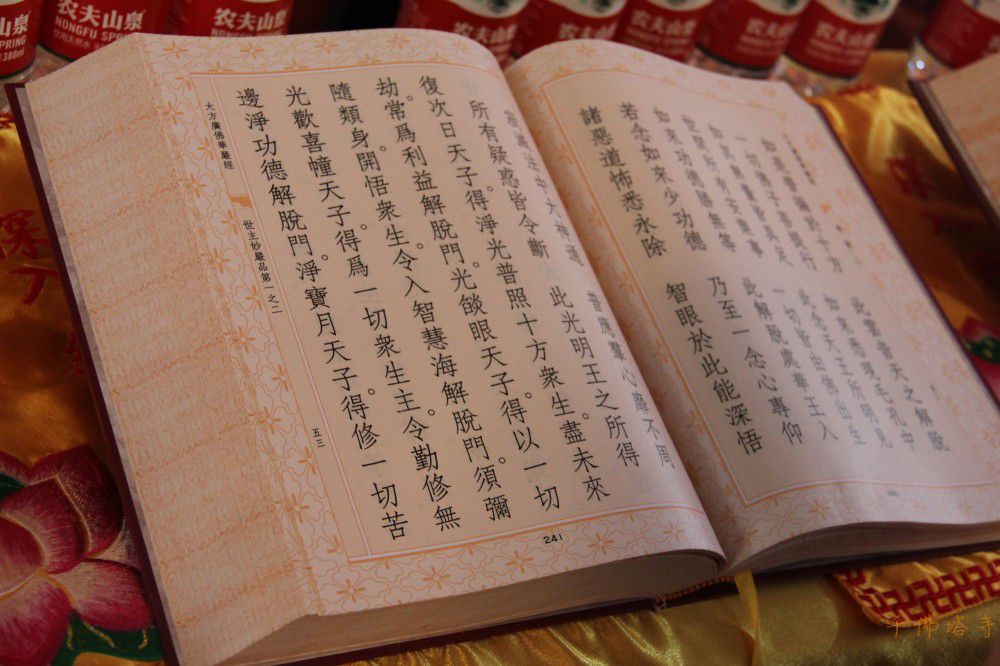 此雲音天之解脫
世間所有安樂事 一切皆由佛出生
如來功德勝無等 此解脫處華王入
若念如來少功德 乃至一念心專仰
諸惡道怖悉永除 智眼於此能深悟
寂滅法中大神通 普應羣心靡不周
所有疑惑皆令斷 此光明王之所得
復次日天子。得淨光普照十方衆生。盡未來
劫常爲利益解脫門。光燄眼天子。得以一切
隨類身。開悟衆生。令入智慧海解脫門。須彌
光歡喜幢天子。得爲一切衆生主。令勤修無
邊淨功德解脫門。淨寶月天子。得修一切苦
大方廣佛華嚴經 世主妙嚴品第一之二 五三
241
农夫山泉
NONGFU SPRING
饮用天然水
380ml
农夫山泉
农夫山泉
农夫山泉
农夫山泉
千佛塔寺